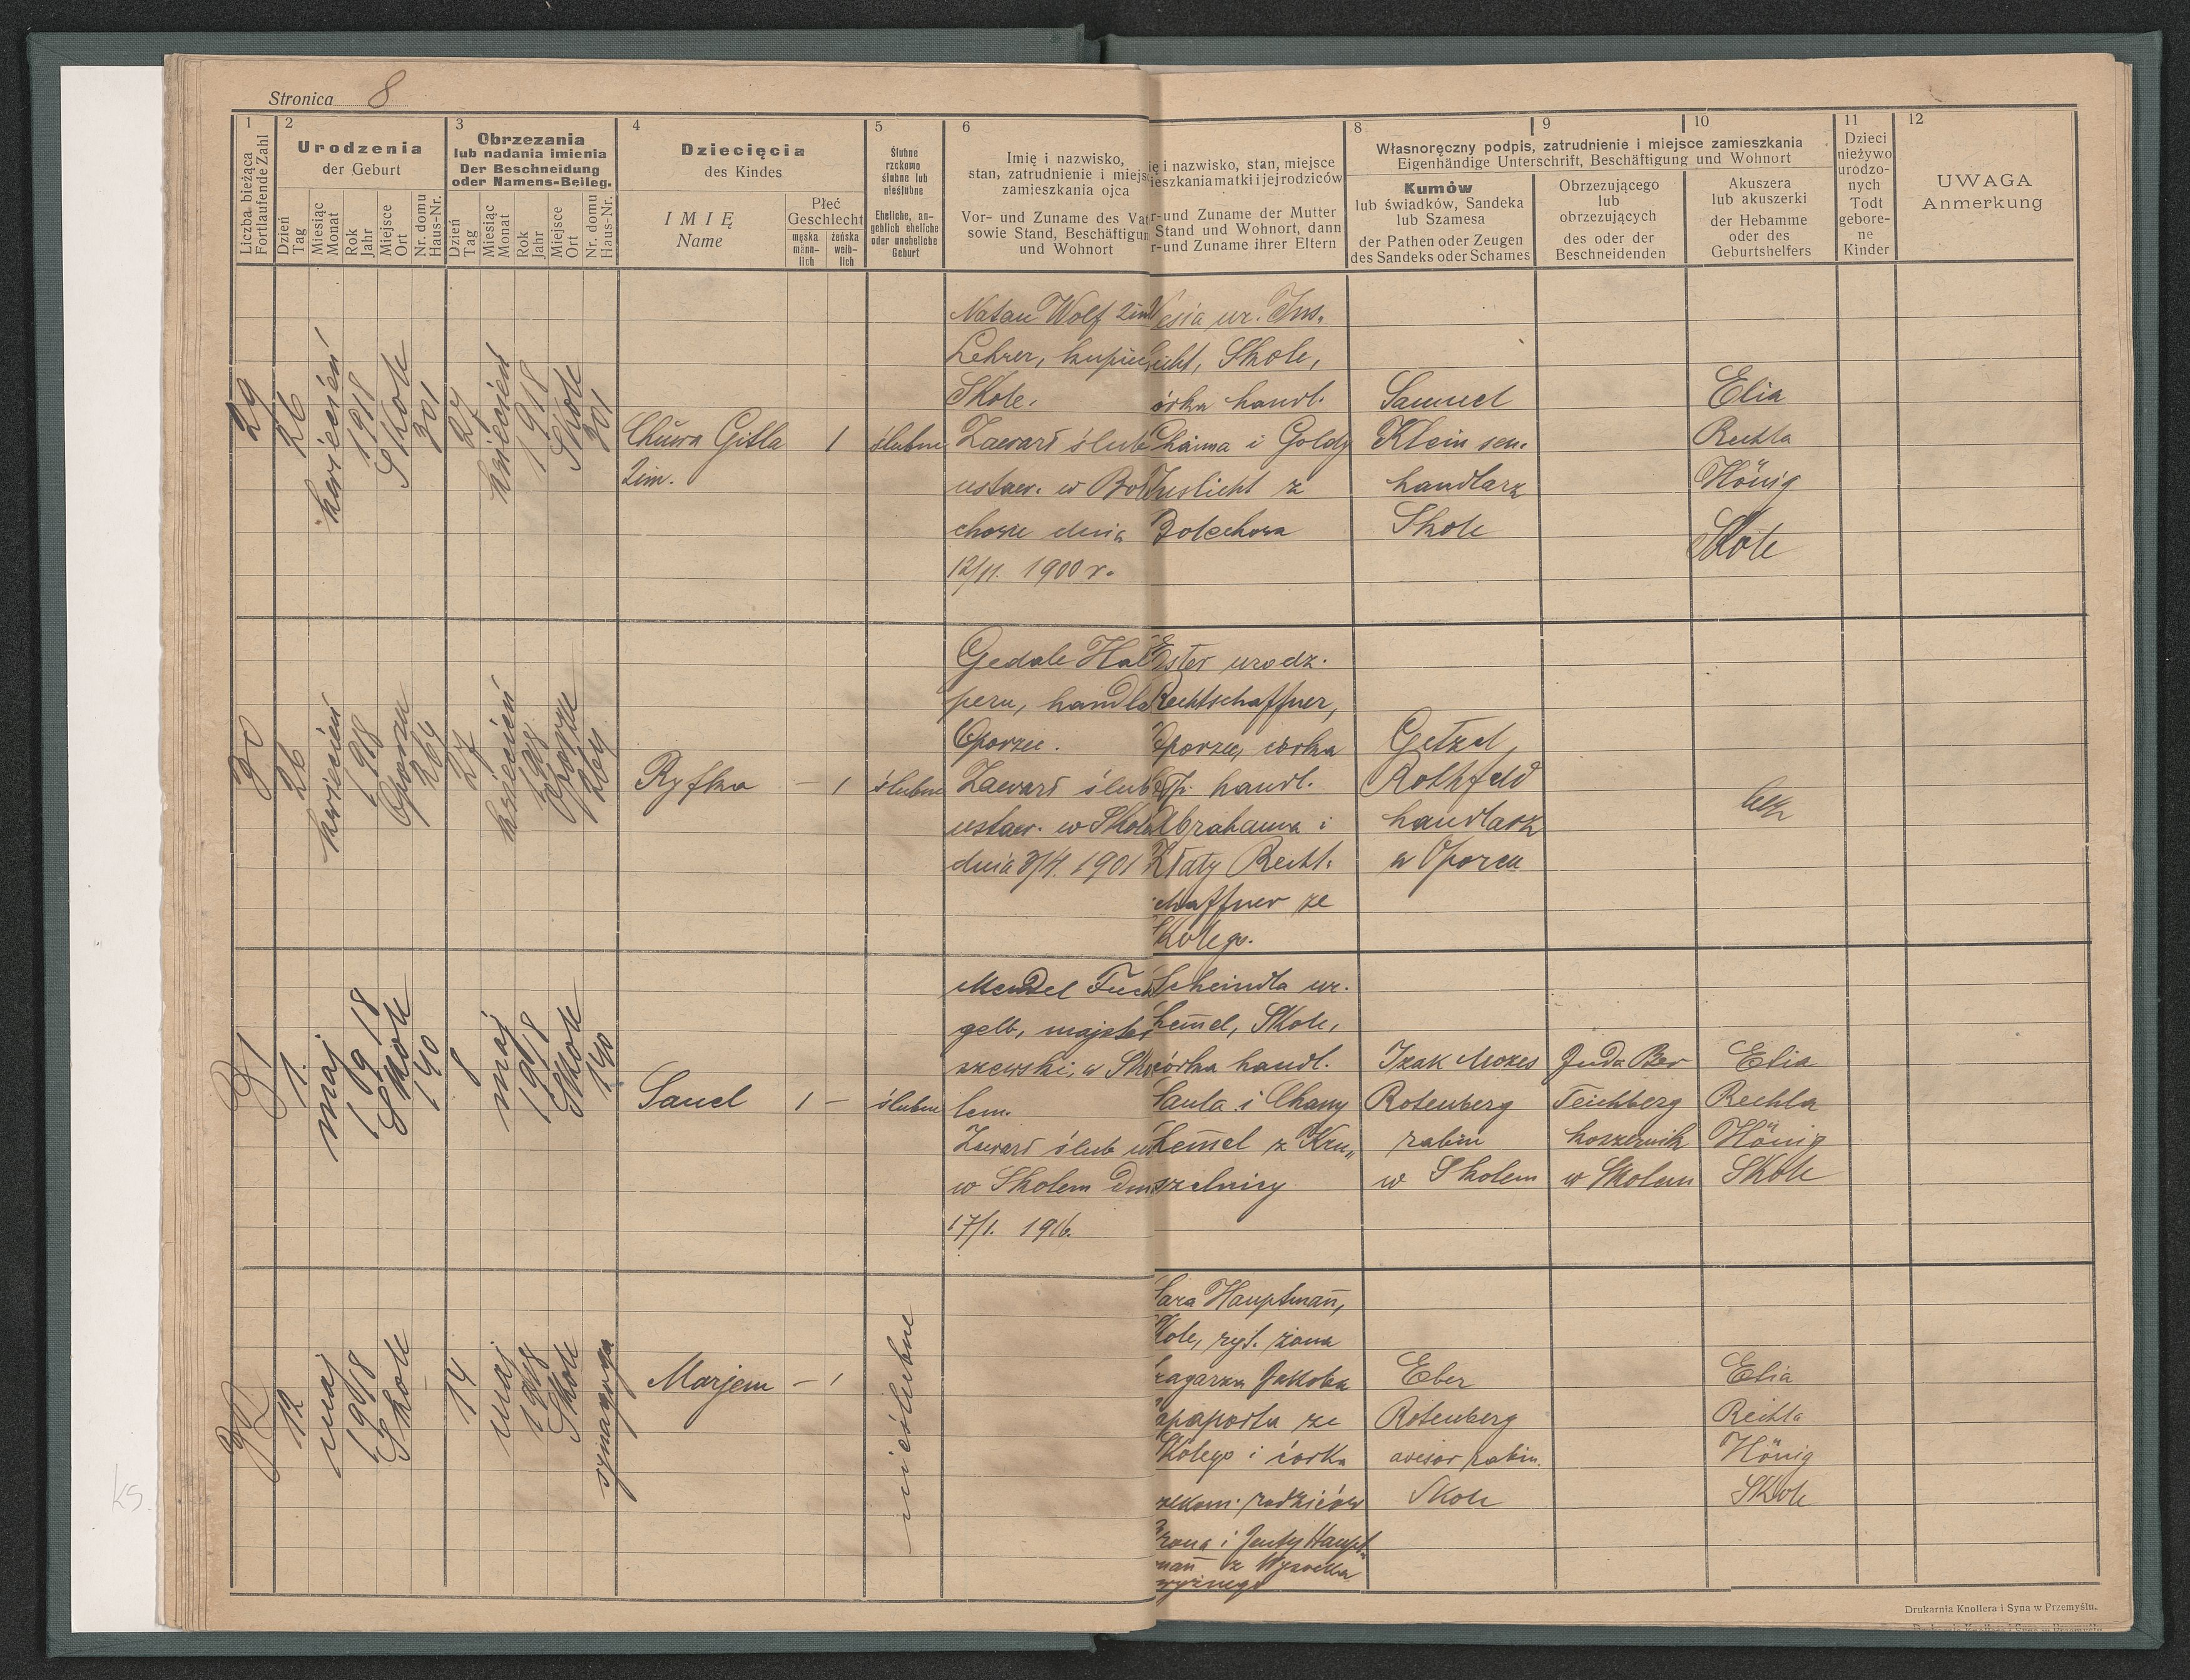 Stronica 8
1
Liczba bieżąca
Fortlaufende Zahl
2
Urodzenia
der Geburt
Dzień
Tag
Miesiąc
Monat
Rok
Jahr
Miejsce
Ort
Nr. domu
Haus-Nr.
3
Obrzezania
lub nadania imienia
Der Beschneidung
oder Namens-Beileg.
Dzień
Tag
Miesiąc
Monat
Rok
Jahr
Miejsce
Ort
Nr. domu
Haus-Nr.
4
Dziecięcia
des Kindes
IMIĘ
Name
Płeć
Geschlecht
męska
männ-
lich
żeńska
weib-
lich
5
Ślubne
rzekomo
ślubne lub
nieślubne
Eheliche, an-
geblich eheliche
oder uneheliche
Geburt
6
Imię i nazwisko,
stan, zatrudnienie i miejs
zamieszkania ojca
Vor- und Zuname des Vat
sowie Stand, Beschäftigun
und Wohnort
ię i nazwisko, stan, miejsce
ieszkania matki i jej rodziców
r-und Zuname der Mutter
Stand und Wohnort, dann
r-und Zuname ihrer Eltern
8
9
10
Własnoręczny podpis, zatrudnienie i miejsce zamieszkania
Eigenhändige Unterschrift, Beschäftigung und Wohnort
Kumów
lub świadków, Sandeka
lub Szamesa
der Pathen oder Zeugen
des Sandeks oder Schames
Obrzezującego
lub
obrzezujących
des oder der
Beschneidenden
Akuszera
lub akuszerki
der Hebamme
oder des
Geburtshelfers
11
Dzieci
nieżywo
urodzo-
nych
Todt
gebore-
ne
Kinder
12
UWAGA
Anmerkung
29
26
kwiecień
1918
Skole
301
27
kwiecień
1918
Skole
301
Chuwa Gitla
2im.
1
ślubne
Natan Wolf 2im
Lehrer, kupiec
Skole.
Zawarł ślub
ustaw. w Bole
chowie dnia
12/11. 1900 r.
esia ur. Jus-
licht, Skole,
córka handl.
Chaima i Goldy
Juslicht z
Bolechowa
Samuel
Klein sen.
handlarz
Skole
Elia
Rechla
Hönig
Skole
30
26
kwiecień
1918
Oporzu
264
27
kwiecień
1918
Oporzu
264
Ryfka
— 1
ślubne
Gedale Hal
pern, handla
Oporzec.
Zawarł ślub
ustaw. w Skole
dnia 8/4. 1901
Ester urodz.
Rechtschaffner,
Oporzec, córka
handl.
Abrahama i
Złaty Recht-
schaffner ze
Skolego.
Getzel
Rothfeld
handlarz
w Oporcu
31
1.
maj
1918
Skole
140
8
maj
1918
Skole
140
Sauel
1 —
ślubne
Mendel Fuch
gelb, majster
szewski, w Sko
lem.
Zawarł ślub us
w Skolem dnia
17/1. 1916.
Scheindla ur.
Hem̄el, Skole,
córka handl.
Saula i Chany
Hem̄el z Kru-
szelnicy
Izak Mozes
Rotenberg
rabin
w Skolem
Juda Ber
Teichberg
koszernik
w Skolem
Elia
Rechla
Hönig
Skole
32
12
maj
1918
Skole
14
maj
1918
Skole
synagoga
Marjem
— 1
nieślubne
Sara Hauptman̄,
Skole, ryt. żona
Jakoba
apaporta ze
Skolego i córka
rzekom. rodziców
i Jenty Haupt-
man̄ z Wysocka
wyżnego
Eber
Rotenberg
asesor rabin.
Skole
Elia
Rechla
Hönig
Skole
ks.
Drukarnia Knollera i Syna w Przemyślu.